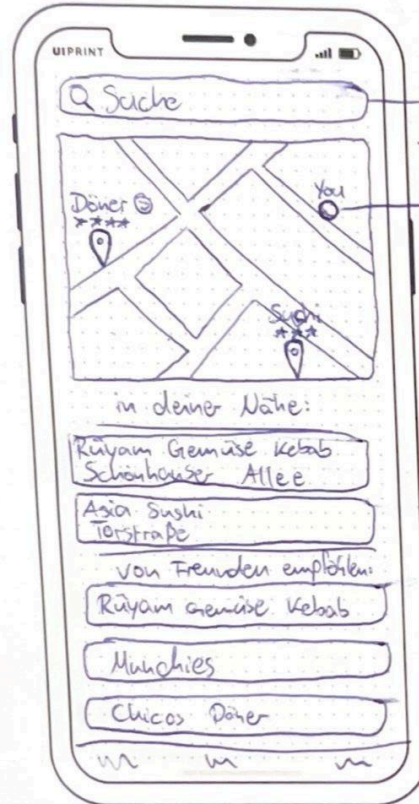 UIPRINT
Suche
Döner
You
Sushi
in deiner Nähe:
Rüyam Gemüse Kebab
Schönhauser Allee
Asia Sushi
Torstraße
von Freunden empfohlen:
Rüyam Gemüse Kebab
Munchies
Chicos Döner